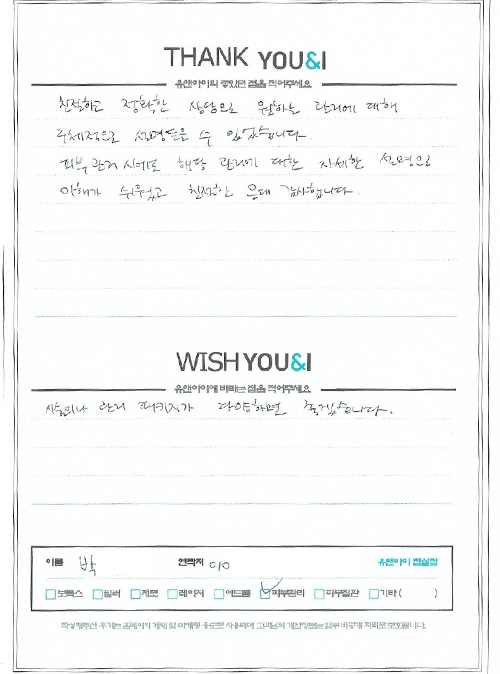 THANK YOU&I
유앤아이의 좋았던 점을 적어주세요.
친절하고 정확한 상담으로 원하는 관리에 대해
구체적으로 설명들을 수 있었습니다.
피부관리 시에도 해당 관리에 대한 자세한 설명으로
이해가 쉬웠고 친절한 응대 감사합니다.
WISH YOU&I
유앤아이에 바라는 점을 적어주세요.
시술이나 관리 패키지가 다양하면 좋겠습니다.
이름 박 연락처 010 유앤아이 잠실점
보톡스 필러 제모 레이저 여드름 피부관리 피부질환 기타 ( )